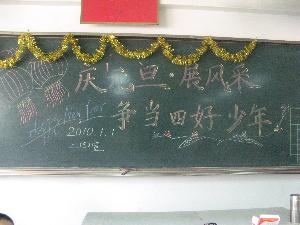 庆元旦·展风采
争当四好少年
Happy New Year
2010.1.1